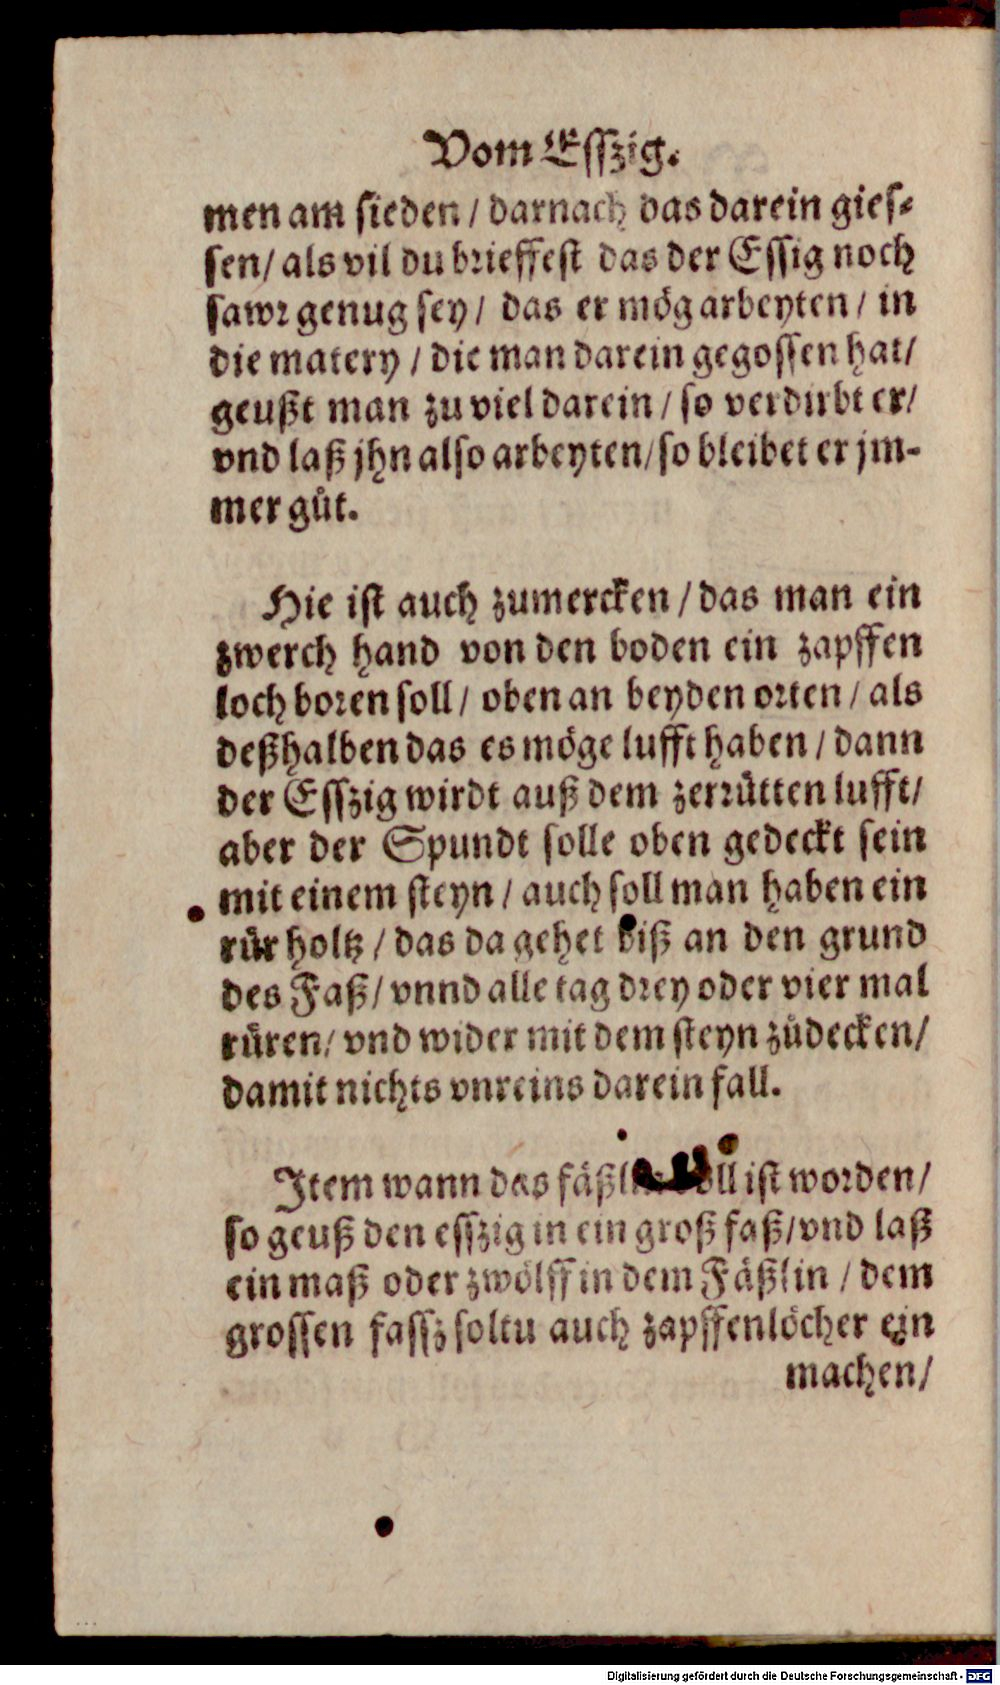 Vom Esszig.
men am sieden / darnach das darein gies⸗
sen / als vil du brieffest das der Essig noch
sawr genug sey / das er mög arbeyten / in
die matery / die man darein gegossen hat /
geußt man zu viel darein / so verdirbt er /
vnd laß jhn also arbeyten / so bleibet er jm-
mer gůt.
Hie ist auch zumercken / das man ein
zwerch hand von den boden ein zapffen
loch boren soll / oben an beyden orten / als
deßhalben das es möge lufft haben / dann
der Esszig wirdt auß dem zerrütten lufft /
aber der Spundt solle oben gedeckt sein
mit einem steyn / auch soll man haben ein
rür holtz / das da gehet biß an den grund
des Faß / vnnd alle tag drey oder vier mal
rüren / vnd wider mit dem steyn zůdecken /
damit nichts vnreins darein fall.
Item wann das ist worden /
so geuß den esszig in ein groß faß / vnd laß
ein maß oder zwölff in dem Fäßlin / dem
grossen fassz soltu auch zapffenlöcher ein
machen /
Digitalisierung gefördert durch die Deutsche Forschungsgemeinschaft - DFG